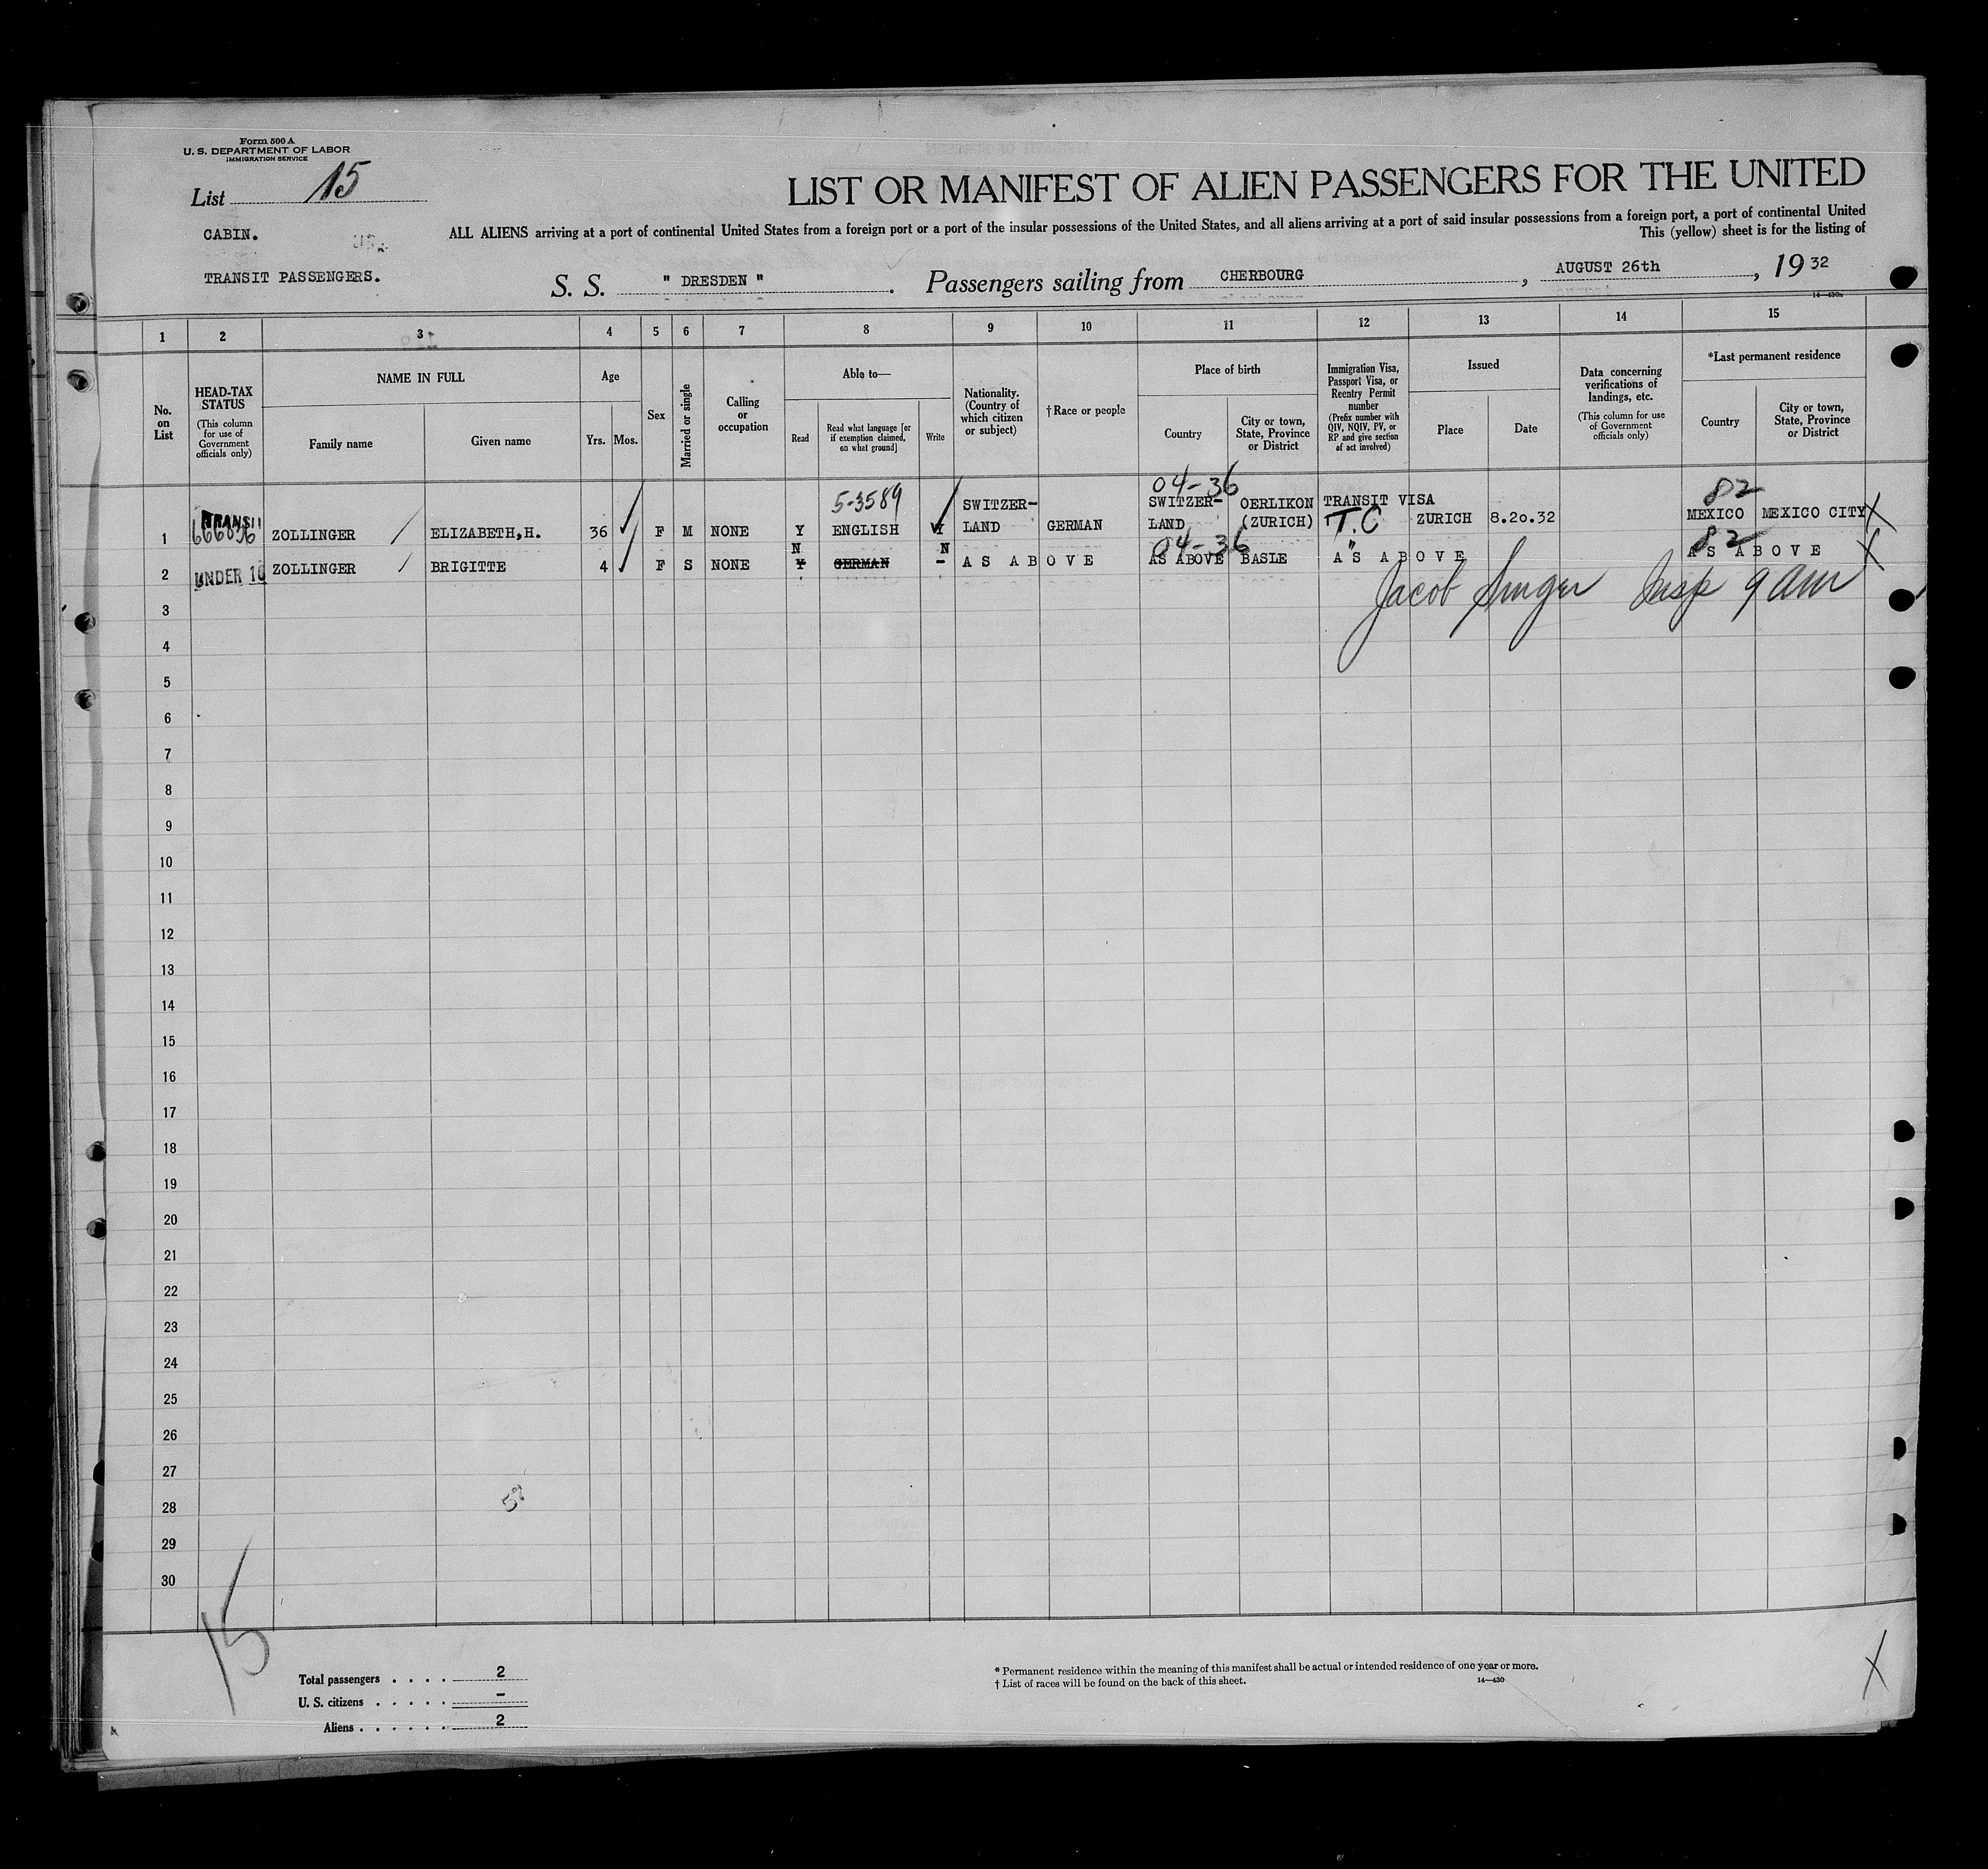 Form 500 A
U. S. DEPARTMENT OF LABOR
IMMIGRATION SERVICE
List 15
LIST OR MANIFEST OF ALIEN PASSENGERS FOR THE UNITED
CABIN.
ALL ALIENS arriving at a port of continental United States from a foreign port or a port of the insular possessions of the United States, and all aliens arriving at a port of said insular possessions from a foreign port, a port of continental United
This (yellow) sheet is for the listing of
TRANSIT PASSENGERS.
S. S. " DRESDEN ". Passengers sailing from CHERBOURG, AUGUST 26th, 1932
1 2 3 4 5 6 7 8 9 10 11 12 13 14 15
No. on List
HEAD-TAX STATUS (This column for use of Government officials only)
NAME IN FULL
Family name
Given name
Age
Yrs. Mos.
Sex
Married or single
Calling or occupation
Able to—
Read
Read what language [or if exemption claimed, on what ground]
Write
Nationality. (Country of which citizen or subject)
† Race or people
Place of birth
Country
City or town, State, Province or District
Immigration Visa, Passport Visa, or Reentry Permit number (Prefix number with QIV, NQIV, PV, or RP and give section of act involved)
Issued
Place
Date
Data concerning verifications of landings, etc. (This column for use of Government officials only)
*Last permanent residence
Country
City or town, State, Province or District
5-3589 04-36 82
1 TRANSIT ZOLLINGER ELIZABETH,H. 36 F M NONE Y ENGLISH Y SWITZER-LAND GERMAN SWITZER-LAND OERLIKON (ZURICH) TRANSIT VISA T.C ZURICH 8.20.32 MEXICO MEXICO CITY X
N N 04-36 82
2 UNDER 16 ZOLLINGER BRIGITTE 4 F S NONE Y GERMAN - AS ABOVE AS ABOVE BASLE AS ABOVE AS ABOVE X
Jacob Singer Insp 9 am
3
4
5
6
7
8
9
10
11
12
13
14
15
16
17
18
19
20
21
22
23
24
25
26
27
28
29
30
15
Total passengers . . . . 2
U. S. citizens . . . . . –
Aliens . . . . . . 2
* Permanent residence within the meaning of this manifest shall be actual or intended residence of one year or more.
† List of races will be found on the back of this sheet.
14—430
X